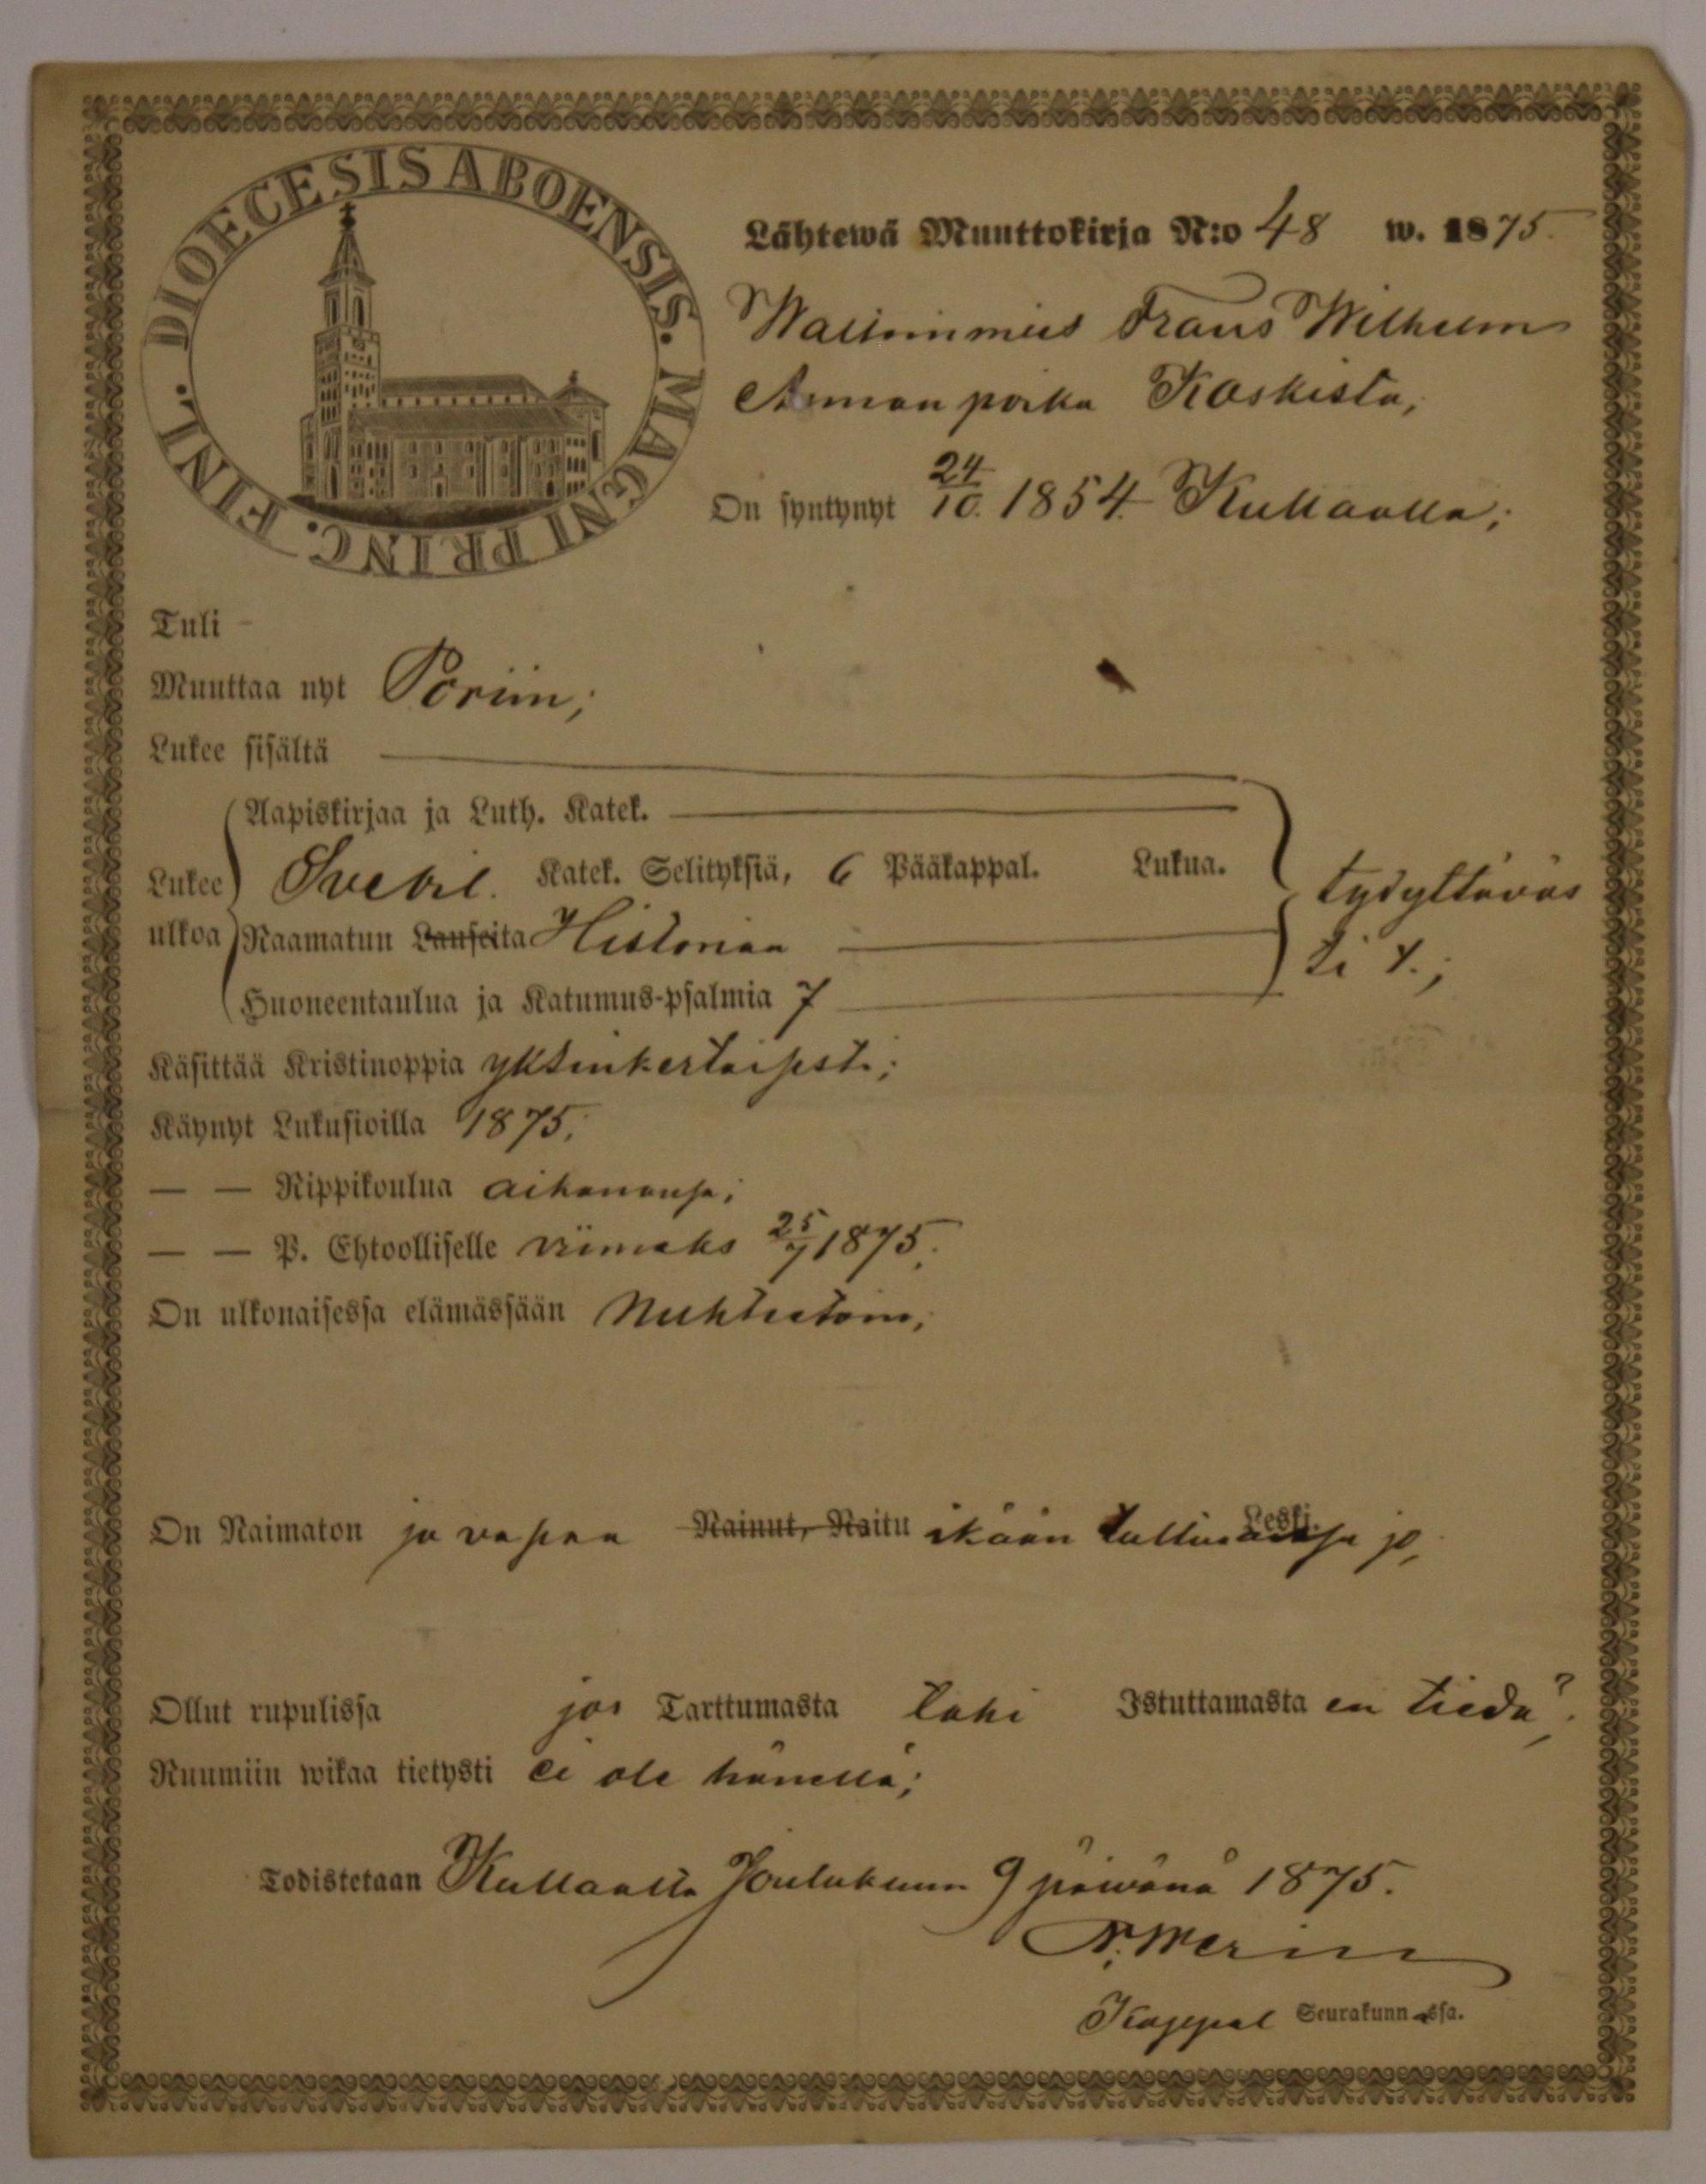 DIOECESIS ABOENSIS. MAGNI PRINC. FINL.
Lähtewä Muuttokirja N:o 48 w. 1875.
Frans Wilhelm
Annan poika Koskista,
On syntynyt 24/10. 1854. Kullaalla;
Tuli -
Muuttaa nyt Poriin;
Lukee sisältä
Aapiskirjaa ja Luth. Katek.
Lukee ulkoa Svebil. Katek. Selityksiä, 6 Pääkappal. Lukua. tydyttäväs
Raamatun Lauseita Historiaa ti
Huoneentaulua ja Katumus-psalmia 7
Käsittää Kristinoppia yksinkertaisesti;
Käynyt Lukusioilla 1875;
— — Rippikoulua aikanansa;
— — P. Ehtoolliselle viimeks 25/7 1875.
On ulkonaisessa elämässään Nuhteetoin;
On Naimaton ja vapaa Nainut, Naitu ikään tultuansa jo, Leski.
Ollut rupulissa jos Tarttumasta tahi Istuttamasta en tiedä?
Ruumiin wikaa tietysti ei ole hänellä;
Todistetaan Kullaalla Joulukuun 9 päivänä 1875.
Kappal Seurakunnassa.